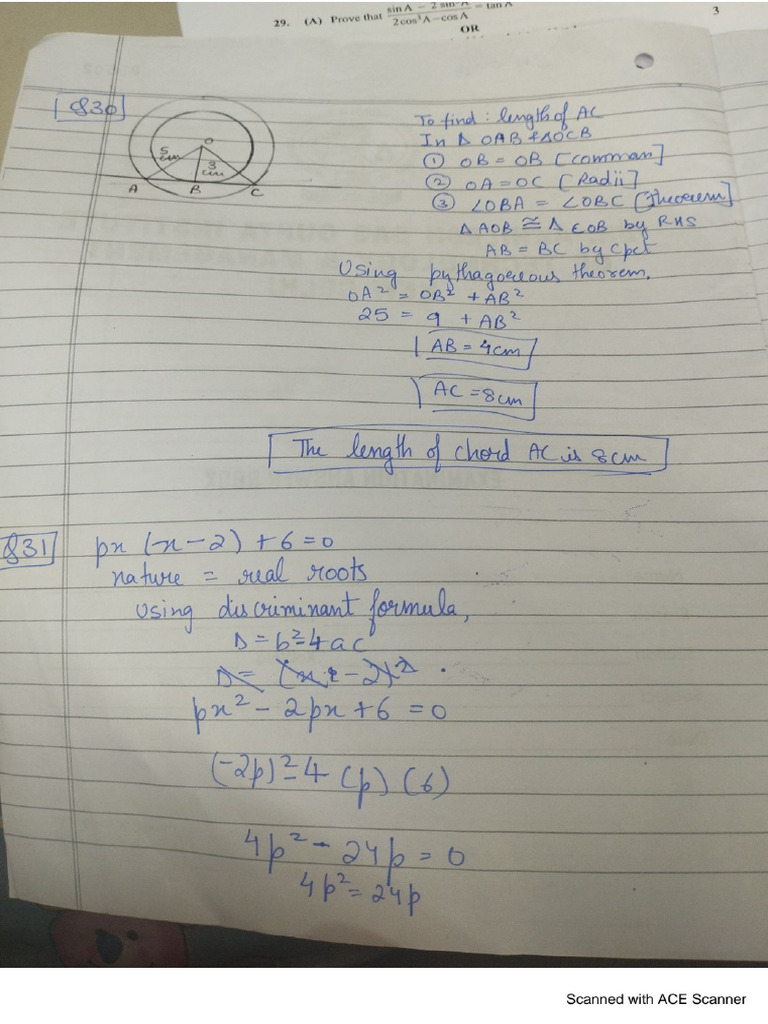 29. (A) Prove that sin A − 2 sin³A / 2cos³A−cosA = tan A
3
OR
Q30
To find : length of AC
In Δ OAB & ΔOCB
① OB = OB [comman]
② OA = OC [Radii]
③ ∠OBA = ∠OBC [Theorem]
Δ AOB ≅ Δ COB by RHS
AB = BC by Cpct
O
5 cm
3 cm
A B C
Using pythagoreous theorem,
OA² = OB² + AB²
25 = 9 + AB²
AB = 4cm
AC = 8cm
The length of chord AC is 8cm
Q31
px (x − 2) + 6 = 0
nature = real roots
Using discriminant formula,
D = b² − 4ac
px² − 2px + 6 = 0
(−2p)² − 4 (p) (6)
4p² − 24p = 0
4p² = 24p
Scanned with ACE Scanner